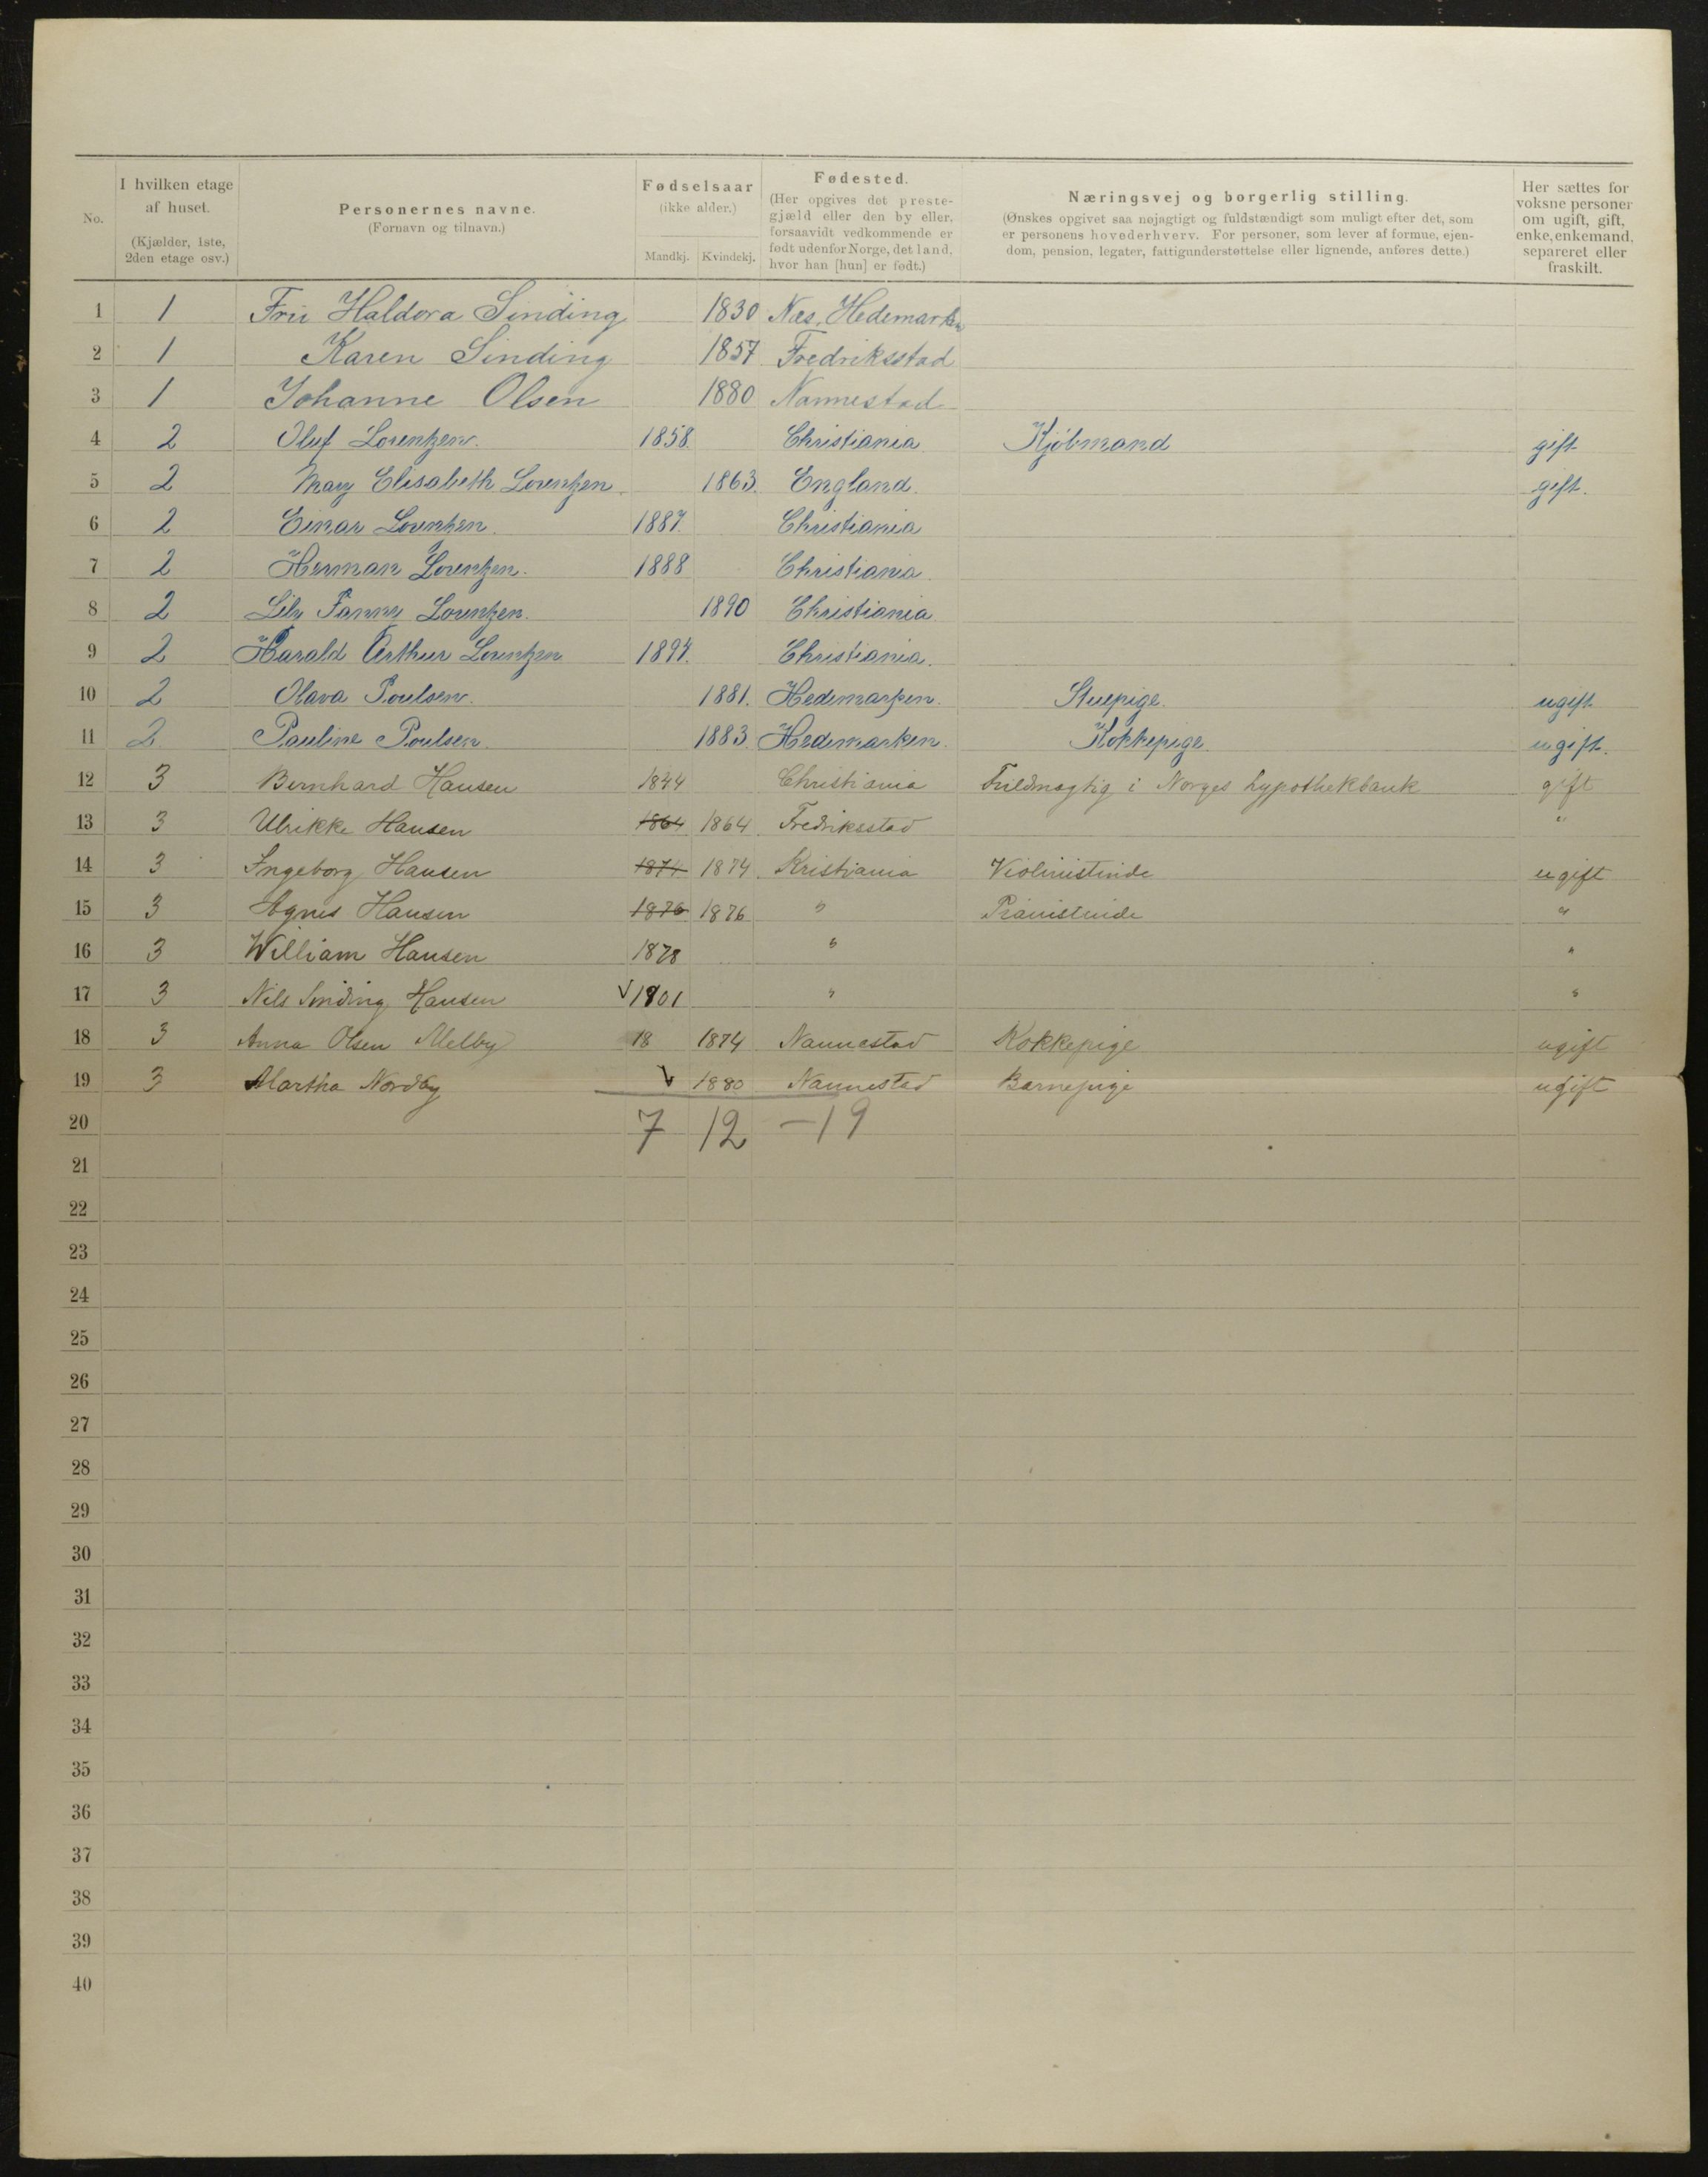 No. | I hvilken etage af huset. (Kjælder, 1ste, 2den etage osv.) | Personernes navne. (Fornavn og tilnavn.) | Fødselsaar (ikke alder.) Mandkj. | Kvindekj. | Fødested. (Her opgives det prestegjæld eller den by eller, forsaavidt vedkommende er født udenfor Norge, det land, hvor han [hun] er født.) | Næringsvej og borgerlig stilling. (Ønskes opgivet saa nøjagtigt og fuldstændigt som muligt efter det, som er personens hovederhverv. For personer, som lever af formue, ejendom, pension, legater, fattigunderstøttelse eller lignende, anføres dette.) | Her sættes for voksne personer om ugift, gift, enke, enkemand, separeret eller fraskilt.
1 1 Fru Haldora Sinding 1830 Næs, Hedemarken
2 1 Karen Sinding 1857 Fredriksstad
3 1 Johanne Olsen 1880 Nannestad
4 2 Oluf Lorentzen. 1858. Christiania Kjöbmand gift
5 2 Mary Elisabeth Lorentzen. 1863. England. gift.
6 2 Einar Lorentzen. 1887. Christiania
7 2 Herman Lorentzen. 1888 Christiania
8 2 Lily Fanny Lorentzen. 1890 Christiania
9 2 Harald Arthur Lorentzen 1894. Christiania.
10 2 Olava Poulsen. 1881. Hedemarken. Stuepige. ugift
11 2 Pauline Poulsen. 1883. Hedemarken. Kokkepige. ugift.
12 3 Bernhard Hansen 1844 Christiania Fuldmægtig i Norges hypothekbank gift
13 3 Ulrikke Hansen 1864 1864 Fredriksstad "
14 3 Ingeborg Hansen 1874 1874 Kristiania Violinistinde ugift
15 3 Agnes Hansen 1876 1876 " Pianistinde "
16 3 William Hansen 1878 " "
17 3 Nils Sinding Hansen 1901 " "
18 3 Anna Olsen Melby 18 1874 Nannestad Kokkepige ugift
19 3 Martha Nordby 1880 Nannestad Barnepige ugift
20 7 12 -19
21
22
23
24
25
26
27
28
29
30
31
32
33
34
35
36
37
38
39
40